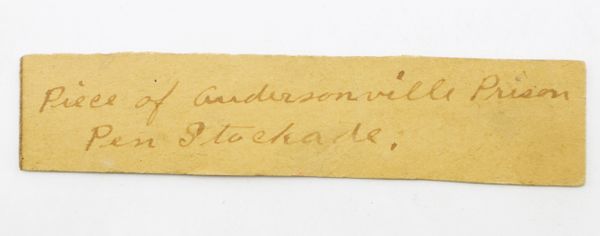 Piece of Andersonville Prison
Pen Stockade.